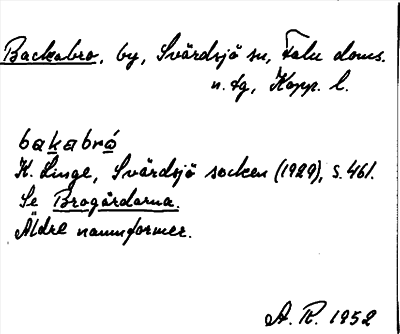 Backabro, by, Svärdsjö sn, Falu doms.
n. tg, Kopp. l.
bakabró
K. Linge, Svärdsjö socken (1929), s. 461.
Se Brogårdarna.
Äldre namnformer.
A. R. 1952